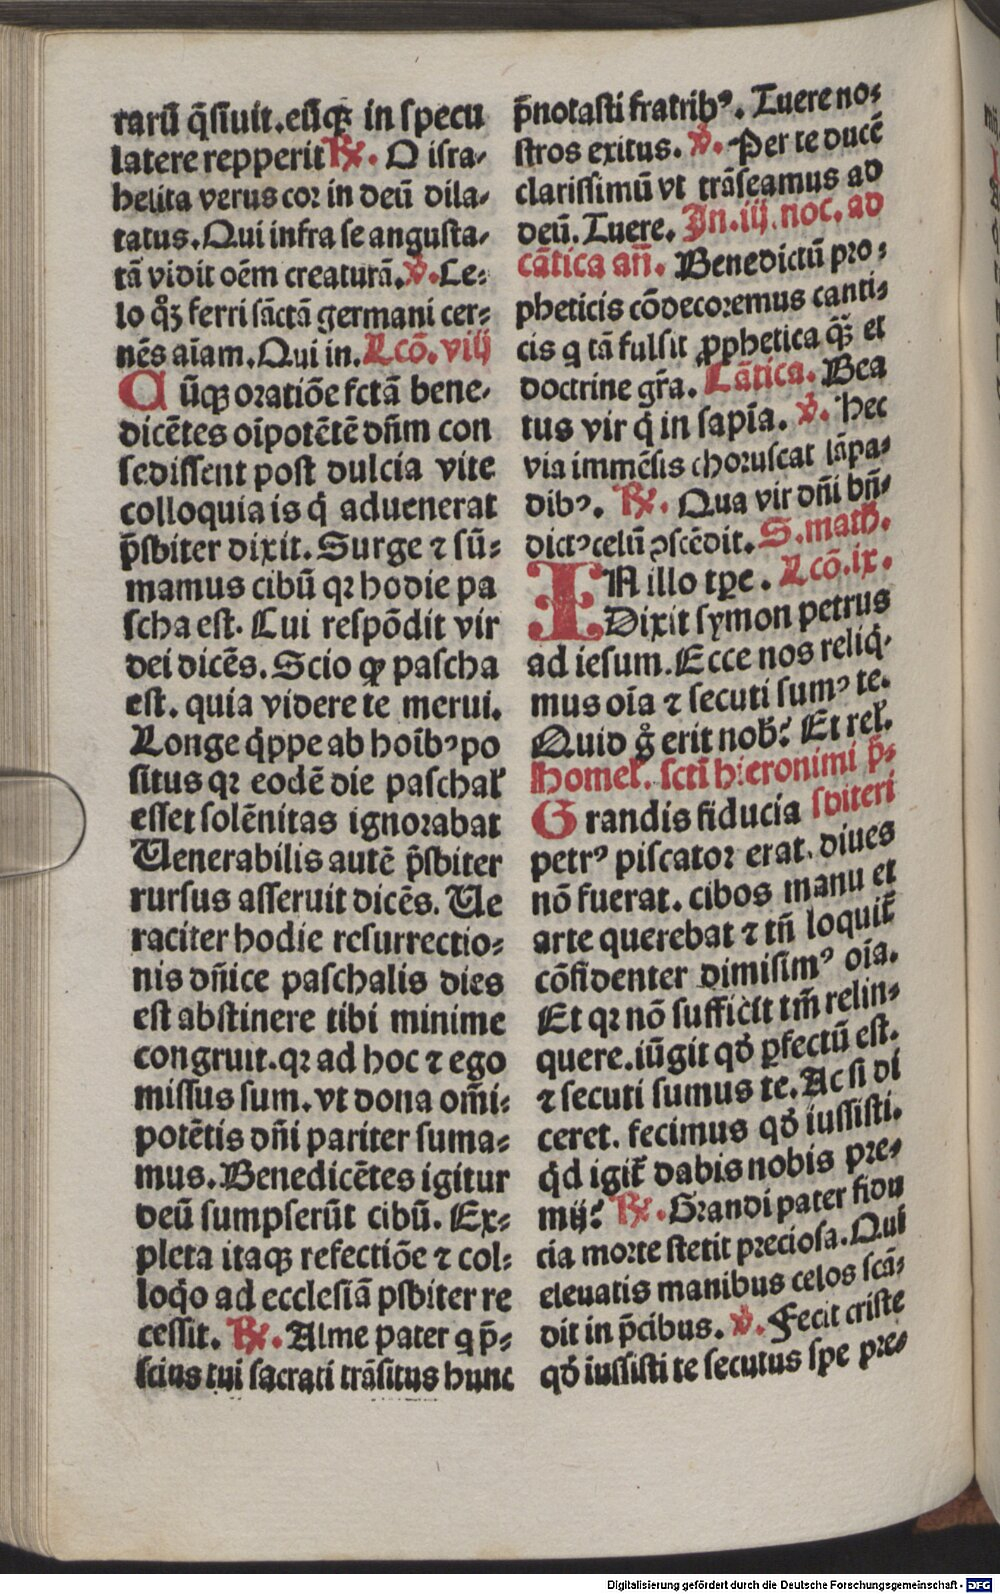 rarū q̄siuit. eūqꝫ in specu
latere repperit ℟. O isra-
helita verus cor in deū dila-
tatus. Qui infra se angusta-
tā vidit oēm creaturā. ℣. Ce-
lo qꝫ ferri sāctā germani cer-
nēs aīam. Qui in. Lcō. viij
Cūqꝫ oratiōe fctā bene-
dicētes oīpotētē dn̄m con
sedissent post dulcia vite
colloquia is q̇ aduenerat
p̄sbiter dixit. Surge ⁊ sū-
mamus cibū qꝛ hodie pa
scha est. Cui respōdit vir
dei dicēs. Scio ꝙ pascha
est. quia videre te merui.
Longe q̇ppe ab hoībꝰ po
situs qꝛ eodē die paschaƚ
esset solēnitas ignorabat
Uenerabilis autē p̄sbiter
rursus asseruit dicēs. Ue
raciter hodie resurrectio-
nis dn̄ice paschalis dies
est abstinere tibi minime
congruit. qꝛ ad hoc ⁊ ego
missus sum. vt dona om̄i-
potētis dn̄i pariter suma-
mus. Benedicētes igitur
deū sumpserūt cibū. Ex-
pleta itaqꝫ refectiōe ⁊ col-
loq̇o ad ecclesiā psbiter re
cessit. ℟. Alme pater q p̄-
scius tui sacrati trāsitus hunc
p̄notasti fratribꝰ. Tuere no-
stros exitus. ℣. Per te ducē
clarissimū vt trāseamus ad
deū. Tuere. In. iij. noc. ad
cātica añ. Benedictū pro-
pheticis cōdecoremus canti-
cis q tā fulsit ꝓphetica qꝫ et
doctrine gr̄a. Cātica. Bea
tus vir q̇ in sapīa. ℣. Hec
via immēsis choruscat lāpa-
dibꝰ. ℟. Qua vir dn̄i bn̄-
dictꝰ celū ꝯscēdit. S. math.
IN illo tꝑe. Lcō. ix.
Dixit symon petrus
ad iesum. Ecce nos reliq̇-
mus oīa ⁊ secuti sumꝰ te.
Quid g̊ erit nob̄? Et reƚ.
Homeƚ. sctī hieronimi p̄-
Grandis fiducia sbiteri
petrꝰ piscator erat. diues
nō fuerat. cibos manu et
arte querebat ⁊ tn̄ loquit᷑
cōfidenter dimisimꝰ oīa.
Et qꝛ nō sufficit tm̄ relin-
quere. iūgit qđ ꝑfectū est.
⁊ secuti sumus te. Ac si di
ceret. fecimus qđ iussisti.
q̇d igit᷑ dabis nobis pre-
mij? ℟. Grandi pater fidu
cia morte stetit preciosa. Qui
eleuatis manibus celos scā-
dit in p̄cibus. ℣. Fecit criste
qđ iussisti te secutus spe pre-
Digitalisierung gefördert durch die Deutsche Forschungsgemeinschaft - DFG